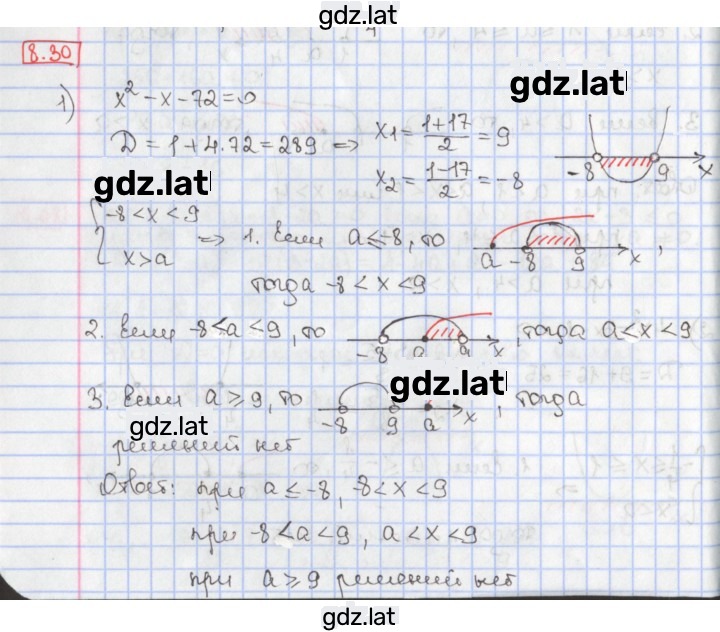 gdz.lat
8.30
gdz.lat
1) x² - x - 72 = 0
D = 1 + 4·72 = 289 => x1 = (1+17)/2 = 9
x2 = (1-17)/2 = -8
-8 9 x
gdz.lat
{ -8 < x < 9
x > a => 1. Если a ≤ -8, то a -8 9 x ,
тогда -8 < x < 9
2. Если -8 < a < 9, то -8 a 9 x , тогда a < x < 9
gdz.lat
3. Если a ≥ 9, то -8 9 a x , тогда
gdz.lat
решений нет
Ответ: при a ≤ -8, -8 < x < 9
при -8 < a < 9, a < x < 9
при a ≥ 9 решений нет
gdz.lat